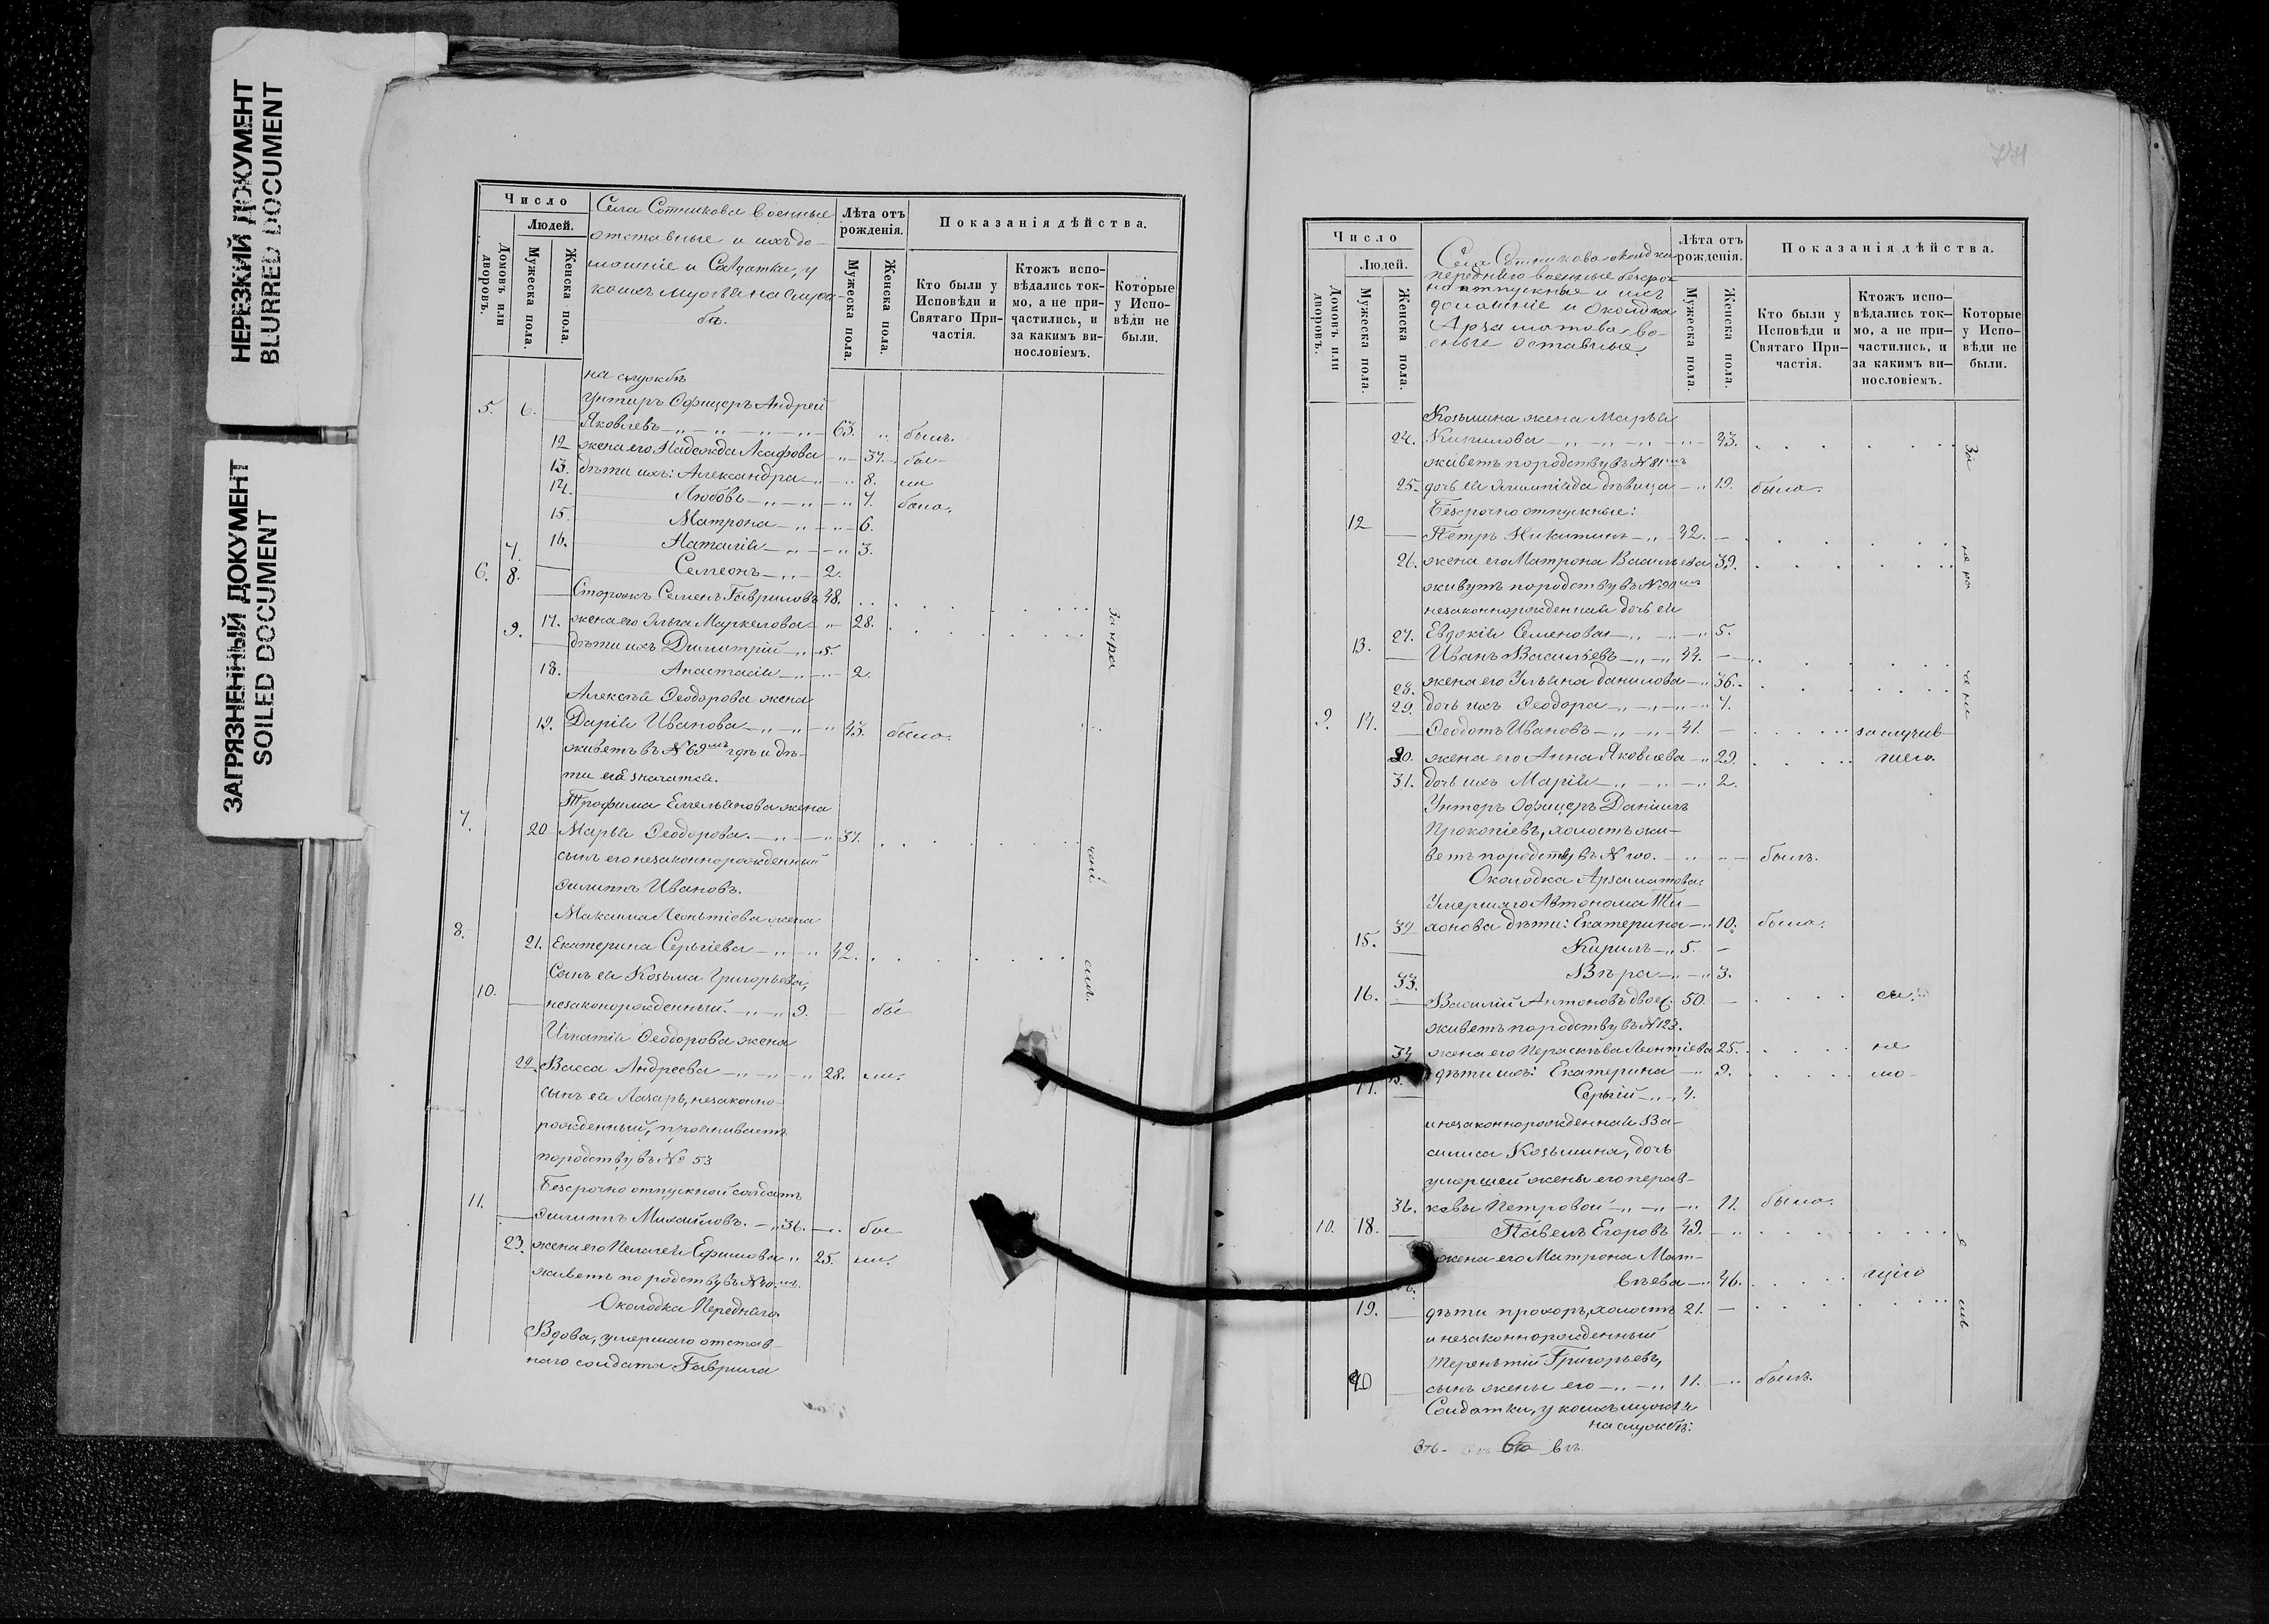 НЕРЕЗКИЙ ДОКУМЕНТ
BLURRED DOCUMENT
ЗАГРЯЗНЕННЫЙ ДОКУМЕНТ
SOILED DOCUMENT
Число
Людей.
Домовъ или дворовъ.
Мужеска пола.
Женска пола.
Села Сотникова военные
отставные и ихъ до-
машніе и Солдатки, у
коихъ мужья на служ-
бѣ.
Лѣта отъ рожденія.
Мужеска пола.
Женска пола.
Показанія дѣйства.
Кто были у Исповѣди и Святаго Причастія.
Ктожъ исповѣдались токмо, а не причастились, и за какимъ винословіемъ.
Которые у Исповѣди не были.
на службѣ
5. 6. Унтеръ Офицеръ Андрей
Яковлевъ 63. былъ.
12 жена его Надежда 37. бы-
13. дѣти ихъ: Александра 8. ли
14. Любовь 7. была.
15. Матрона 6.
16. Наталія 3.
7. Семеонъ 2.
6. 8. Сторожъ Семенъ Гавриловъ 48.
17. жена его Ольга Маркелова 28.
9. дѣти ихъ Димитрій 5.
18. Анастасія 2.
Алексѣя Ѳеодорова жена
19. Дарія Иванова 43. была.
живетъ въ № 69мъ гдѣ и дѣ-
ти ея значатся.
Трофима Емельянова жена
7. 20 Марья Ѳеодорова. 37.
сынъ его незаконнорожденный
Филиппъ Ивановъ.
Максима Леонтіева жена
8. 21. Екатерина Сергіева 42.
Сынъ ея Козьма Григорьевъ,
10. незаконорожденный. 9. бы
Игнатія Ѳеодорова жена
22. Васса Андреева 28. ли.
сынъ ея Лазарь, незаконно-
рожденный, проживаетъ
породству въ № 53
Безсрочно отпускной солдатъ
11. Филиппъ Михайловъ. 36. бы
23. жена его Пелагея Ефимова 25. ли.
живетъ по родству въ
Околодка Передняго
Вдова, умершаго отстав-
наго солдата Гаврила
За нра
сил.
Число
Людей.
Домовъ или дворовъ.
Мужеска пола.
Женска пола.
Села Сотникова околодка
передняго военные безсроч
но отпускные и ихъ
домашніе и Околодка
Арзаматова во-
енные оставные.
Лѣта отъ рожденія.
Мужеска пола.
Женска пола.
Показанія дѣйства.
Кто были у Исповѣди и Святаго Причастія.
Ктожъ исповѣдались токмо, а не причастились, и за какимъ винословіемъ.
Которые у Исповѣди не были.
Козьмина жена Марья
24. Кирилова 43.
живетъ породству въ № 81мъ
25. дочь ея Олимпіада дѣвица 19. была.
Безсрочно отпускные:
12 Петръ Никитинъ 42.
26. жена его Матрона Васильева 39.
живутъ породству въ № 90мъ
незаконнорожденная дочь ея
27. Евдокія Семенова 5.
13. Иванъ Васильевъ 44.
28. жена его Ульяна Данилова 36.
29. дочь ихъ Ѳеодора 7.
9. 14. Ѳеодотъ Ивановъ 41. заслучив
30. жена его Анна Яковлева 29. шего
31. дочь ихъ Марія 2.
Унтеръ Офицеръ Даніилъ
Прокопіевъ, холостъ жи-
ветъ породству въ № 100. былъ.
Околодка Арзаматова:
Умершаго Автонома Ти-
32 хонова дѣти: Екатерина 10. была.
15. Кирилъ 5.
33. Вѣра 3.
16. Василій Антоновъ двоеж. 50. ся
живетъ породству въ № 123.
34 жена его Параскѣва Леонтіева 25. не
дѣти ихъ: Екатерина 9. мо-
17. Сергій 4.
и незаконнорожденная Ва-
силиса Козьмина, дочь
умершей жены его перас-
36. кевы Петровой 11. была.
10. 18. Павелъ Егоровъ 49.
жена его Матрона Мат-
вѣева 46. щію
19. дѣти прохоръ, холостъ 21.
и незаконнорожденный
Терентій Григорьевъ,
20 сынъ жены его 11. былъ.
Солдатки, у коихъ мужья
на службѣ:
За
не ра
че ні